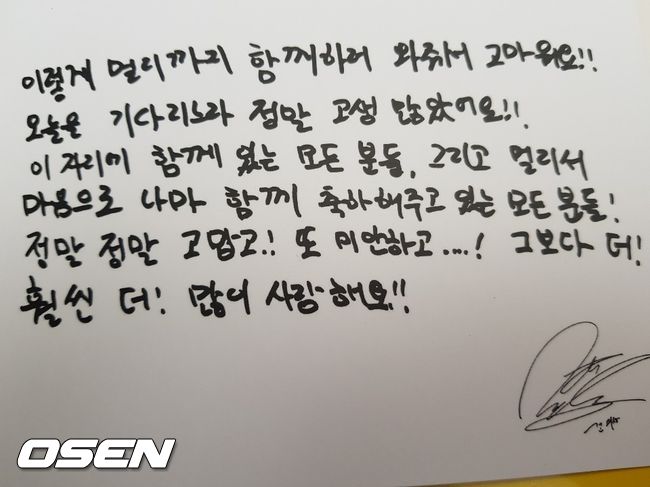 이렇게 멀리까지 함께하러 와줘서 고마워요!!
오늘은 기다리느라 정말 고생 많았어요!!
이 자리에 함께 있는 모든 분들, 그리고 멀리서
마음으로 나마 함께 축하해주고 있는 모든 분들!
정말 정말 고맙고!! 또 미안하고....! 그보다 더!
훨씬 더! 많이 사랑해요!!
OSEN